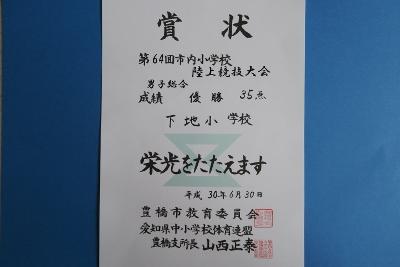 賞状
第64回市内小学校
陸上競技大会
男子総合
成績 優勝 35点
下地小学校
栄光をたたえます
平成 30年6月30日
豊橋市教育委員会
愛知県中小学校体育連盟
豊橋支所長 山西正泰